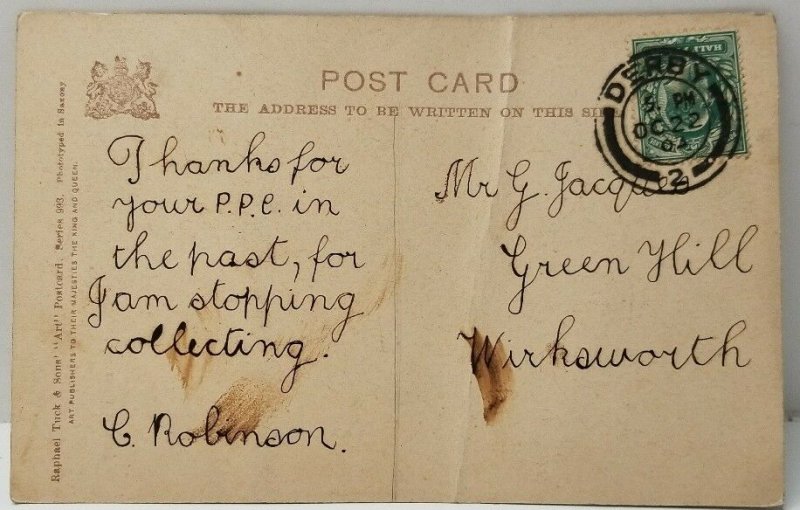 POST CARD
THE ADDRESS TO BE WRITTEN ON THIS SIDE
HALF
DERBY
5 PM
OC 22
2
Thanks for
your P.P.C. in
the past, for
I am stopping
collecting.
C. Robinson.
Mr G. Jacques
Green Hill
Wirksworth
Raphael Tuck & Sons' "Art" Postcard. Series 993. Phototyped in Saxony
ART PUBLISHERS TO THEIR MAJESTIES THE KING AND QUEEN.